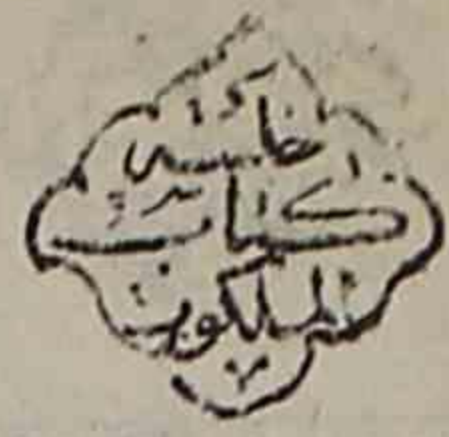 كتاب
الملكوت